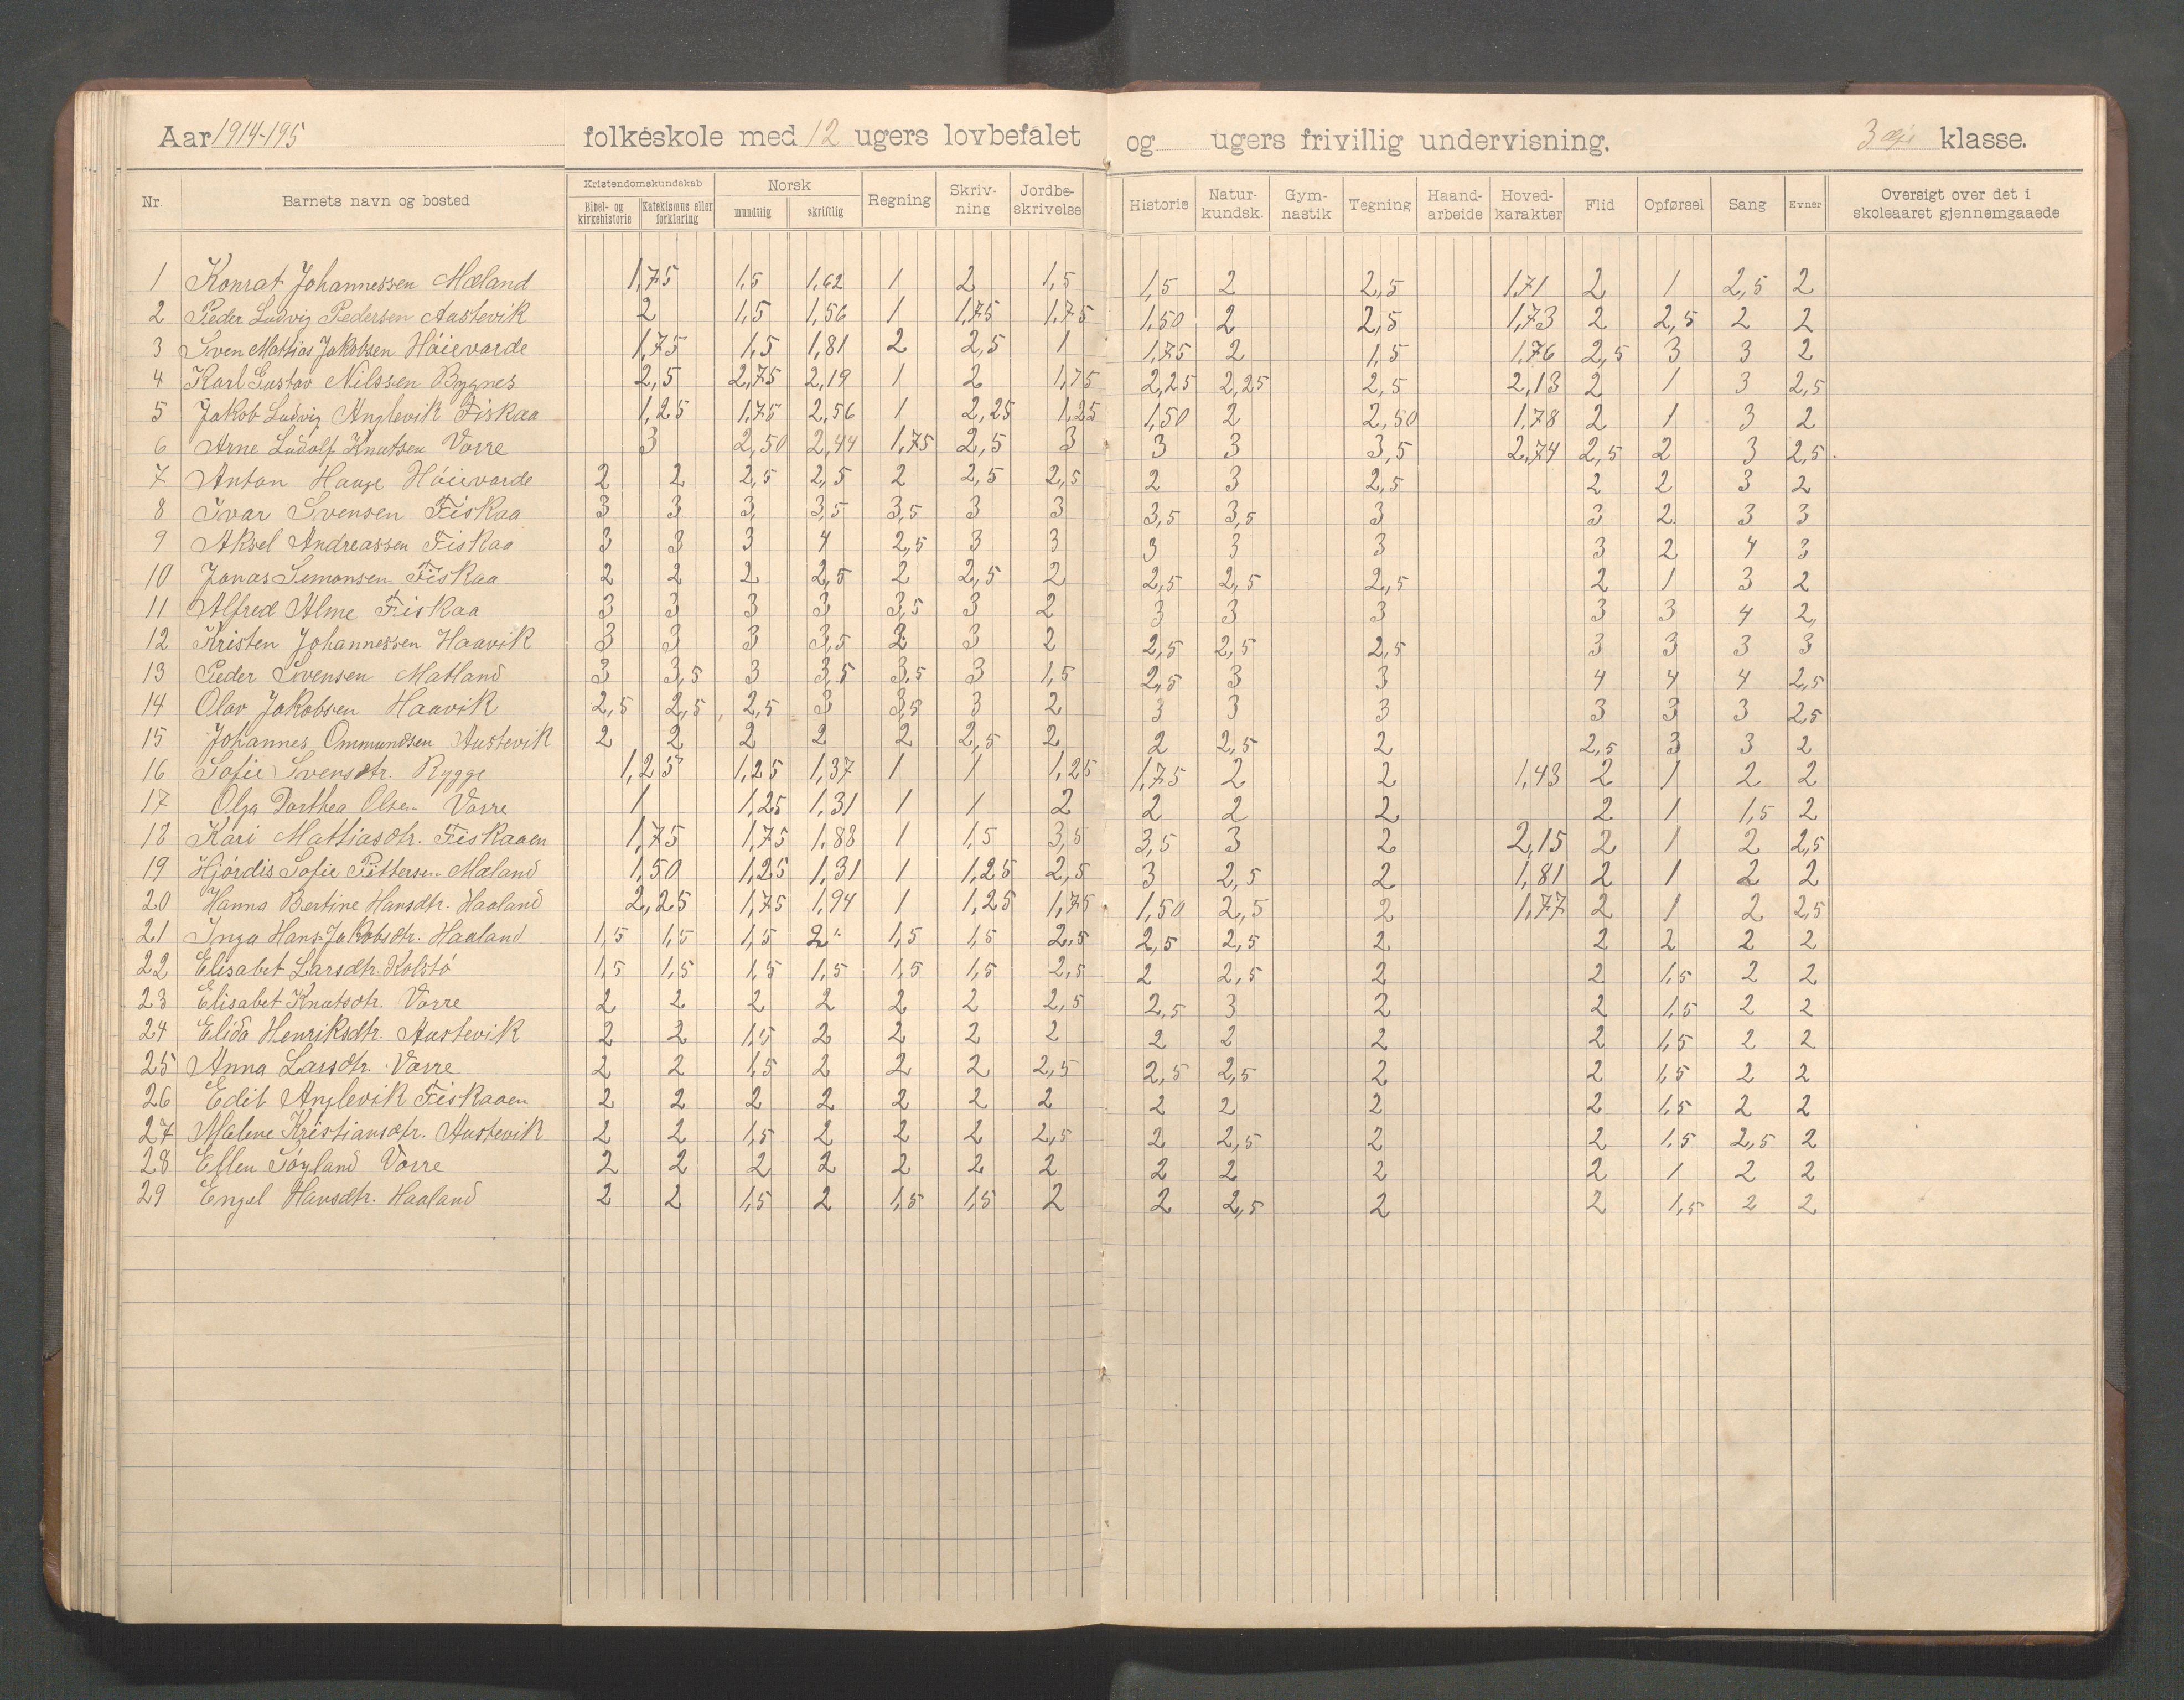 Aar 1914-195 folkeskole med 12 ugers lovbefalet og ugers frivillig undervisning. 3dje klasse.
Nr. Barnets navn og bosted Kristendomskundskab Bibel- og kirkehistorie Katekismus eller forklaring Norsk mundtlig skriftlig Regning Skriv-ning Jordbe-skrivelse Historie Natur-kundsk. Gym-nastik Tegning Haand-arbeide Hoved-karakter Flid Opførsel Sang Evner Oversigt over det i skoleaaret gjennemgaaede
1 Konrat Johannessen Mæland 1,75 1,5 1,62 1 2 1,5 1,5 2 2,5 1,71 2 1 2,5 2
2 Peder Ludvig Pedersen Austevik 2 1,5 1,56 1 1,75 1,75 1,50 2 2,5 1,73 2 2,5 2 2
3 Sven Mathias Jakobsen Høievarde 1,75 1,5 1,81 2 2,5 1 1,75 2 1,5 1,76 2,5 3 3 2
4 Karl Gustav Nilssen Bygnes 2,5 2,75 2,19 1 2 1,75 2,25 2,25 2,5 2,13 2 1 3 2,5
5 Jakob Ludvig Anglevik Fiskaa 1,25 1,75 2,56 1 2,25 1,25 1,50 2 2,50 1,78 2 1 3 2
6 Arne Ludolf Knutsen Vorre 3 2,50 2,44 1,75 2,5 3 3 3 3,5 2,74 2,5 2 3 2,5
7 Anton Hauge Høievarde 2 2 2,5 2,5 2 2,5 2,5 2 3 2,5 2 2 3 2
8 Ivar Svensen Fiskaa 3 3 3, 3,5 3,5 3 3 3,5 3,5 3 3 2 3 3
9 Aksel Andreassen Fiskaa 3 3 3 4 2,5 3 3 3 3 3 3 2 4 3
10 Jonas Semonsen Fiskaa 2 2 2 2,5 2 2,5 2 2,5 2,5 2,5 2 1 3 2
11 Alfred Alme Fiskaa 3 3 3 3 3,5 3 2 3 3 3 3 3 4 2,
12 Kristen Johannessen Haavik 3 3 3 3,5 2 3 2 2,5 2,5 2,5 3 3 3 3
13 Peder Svensen Matland 3 3,5 3 3,5 3,5 3 1,5 2,5 3 3 4 4 4 2,5
14 Olav Jakobsen Haavik 2,5 2,5 2,5 3 3,5 3 2 3 3 3 3 3 3 2,5
15 Johannes Ommundsen Austevik 2 2 2 2 2 2,5 2 2 2,5 2 2,5 3 3 2
16 Sofie Svensdtr. Rygge 1,25 1,25 1,37 1 1 1,25 1,75 2 2 1,43 2 1 2 2
17 Olga Dorthea Olsen Vorre 1 1,25 1,31 1 1 2 2 2 2 2 1 1,5 2
18 Kari Mathiasdtr. Fiskaaen 1,75 1,75 1,88 1 1,5 3,5 3,5 3 2 2,15 2 1 2 2,5
19 Hjørdis Sofie Pettersen Mæland 1,50 1,25 1,31 1 1,25 2,5 3 2,5 2 1,81 2 1 2 2
20 Hanna Bertine Hansdtr. Haaland 2,25 1,75 1,94 1 1,25 1,75 1,50 2,5 2 1,77 2 1 2 2,5
21 Inga Hans-Jakobsdtr. Haaland 1,5 1,5 1,5 2 1,5 1,5 2,5 2,5 2,5 2 2 2 2 2
22 Elisabet Larsdtr. Kolstø 1,5 1,5 1,5 1,5 1,5 1,5 2,5 2 2,5 2 2 1,5 2 2
23 Elisabet Knutsdtr. Vorre 2 2 2 2 2 2 2,5 2,5 3 2 2 1,5 2 2
24 Elida Henriksdtr. Austevik 2 2 1,5 2 2 2 2 2 2 2 2 1,5 2 2
25 Anna Larsdtr. Vorre 2 2 1,5 2 2 2 2,5 2,5 2,5 2 2 1,5 2 2
26 Edit Anglevik Fiskaaen 2 2 2 2 2 2 2 2 2 2 2 1,5 2 2
27 Malene Kristiansdtr. Austevik 2 2 1,5 2 2 2 2,5 2 2,5 2 2 1,5 2,5 2
28 Ellen Søyland Vorre 2 2 2 2 2 2 2 2 2 2 2 1 2 2
29 Engel Hansdtr. Haaland 2 2 1,5 2 1,5 1,5 2 2 2,5 2 2 1,5 2 2